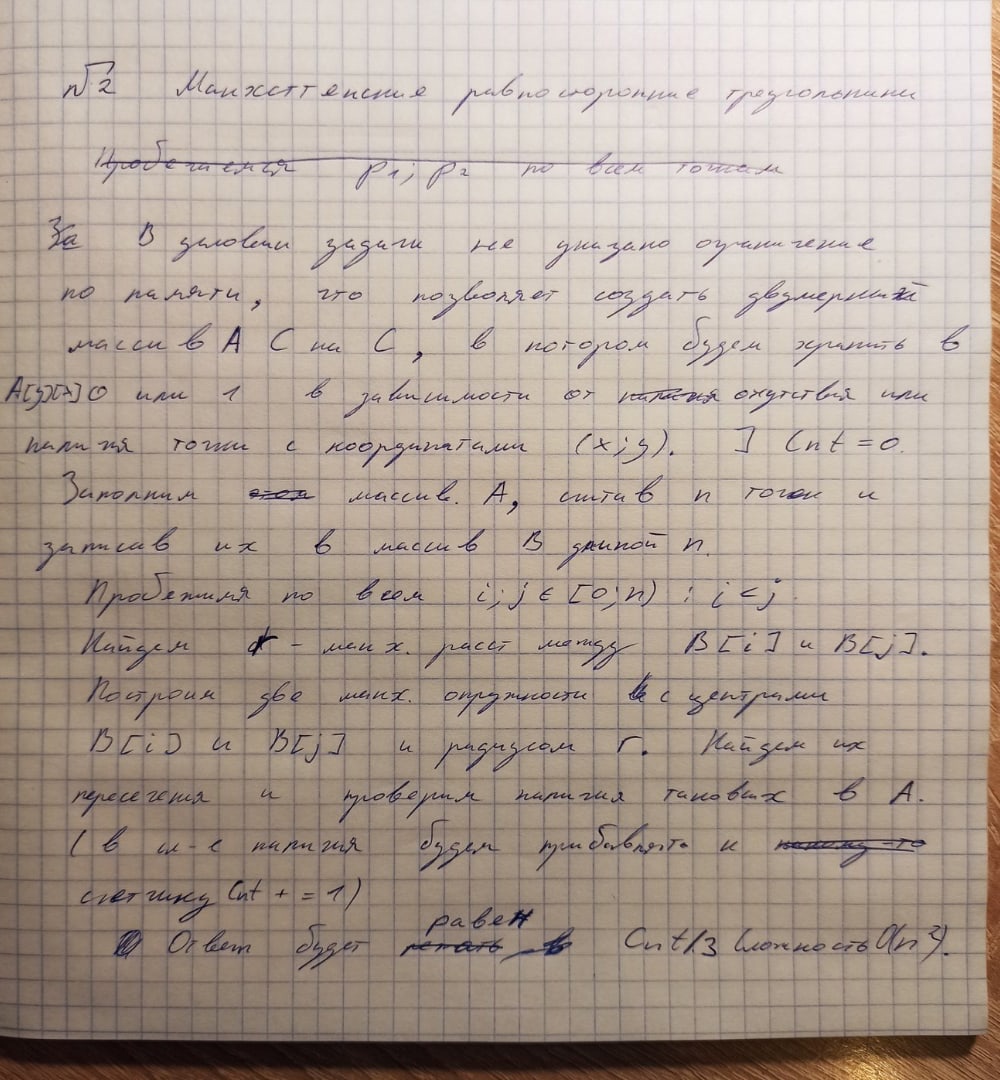 №2 Манхеттенские равносторонние треугольники
Пробежимся p1; p2 по всем точкам
За В условии задачи не указано ограничение
по памяти, что позволяет создать двумерный
массив A C на C, в котором будем хранить в
A[y][x] 0 или 1 в зависимости от наличия отсутствия или
наличия точки с координатами (x;y). ] Cnt = 0.
Заполним этот массив. A, считав n точек и
записав их в массив B длиной n.
Пробежимся по всем i;j ∈ [0;n) : i < j.
Найдем r - манх. расст между B[i] и B[j].
Построим две манх. окружности с центрами
B[i] и B[j] и радиусом r. Найдем их
пересечения и проверим наличия таковых в A.
(в сл-е наличия будем прибавлять к какому-то
счетчику Cnt += 1)
Ответ будет равен Cnt/3 Сложность O(n²).